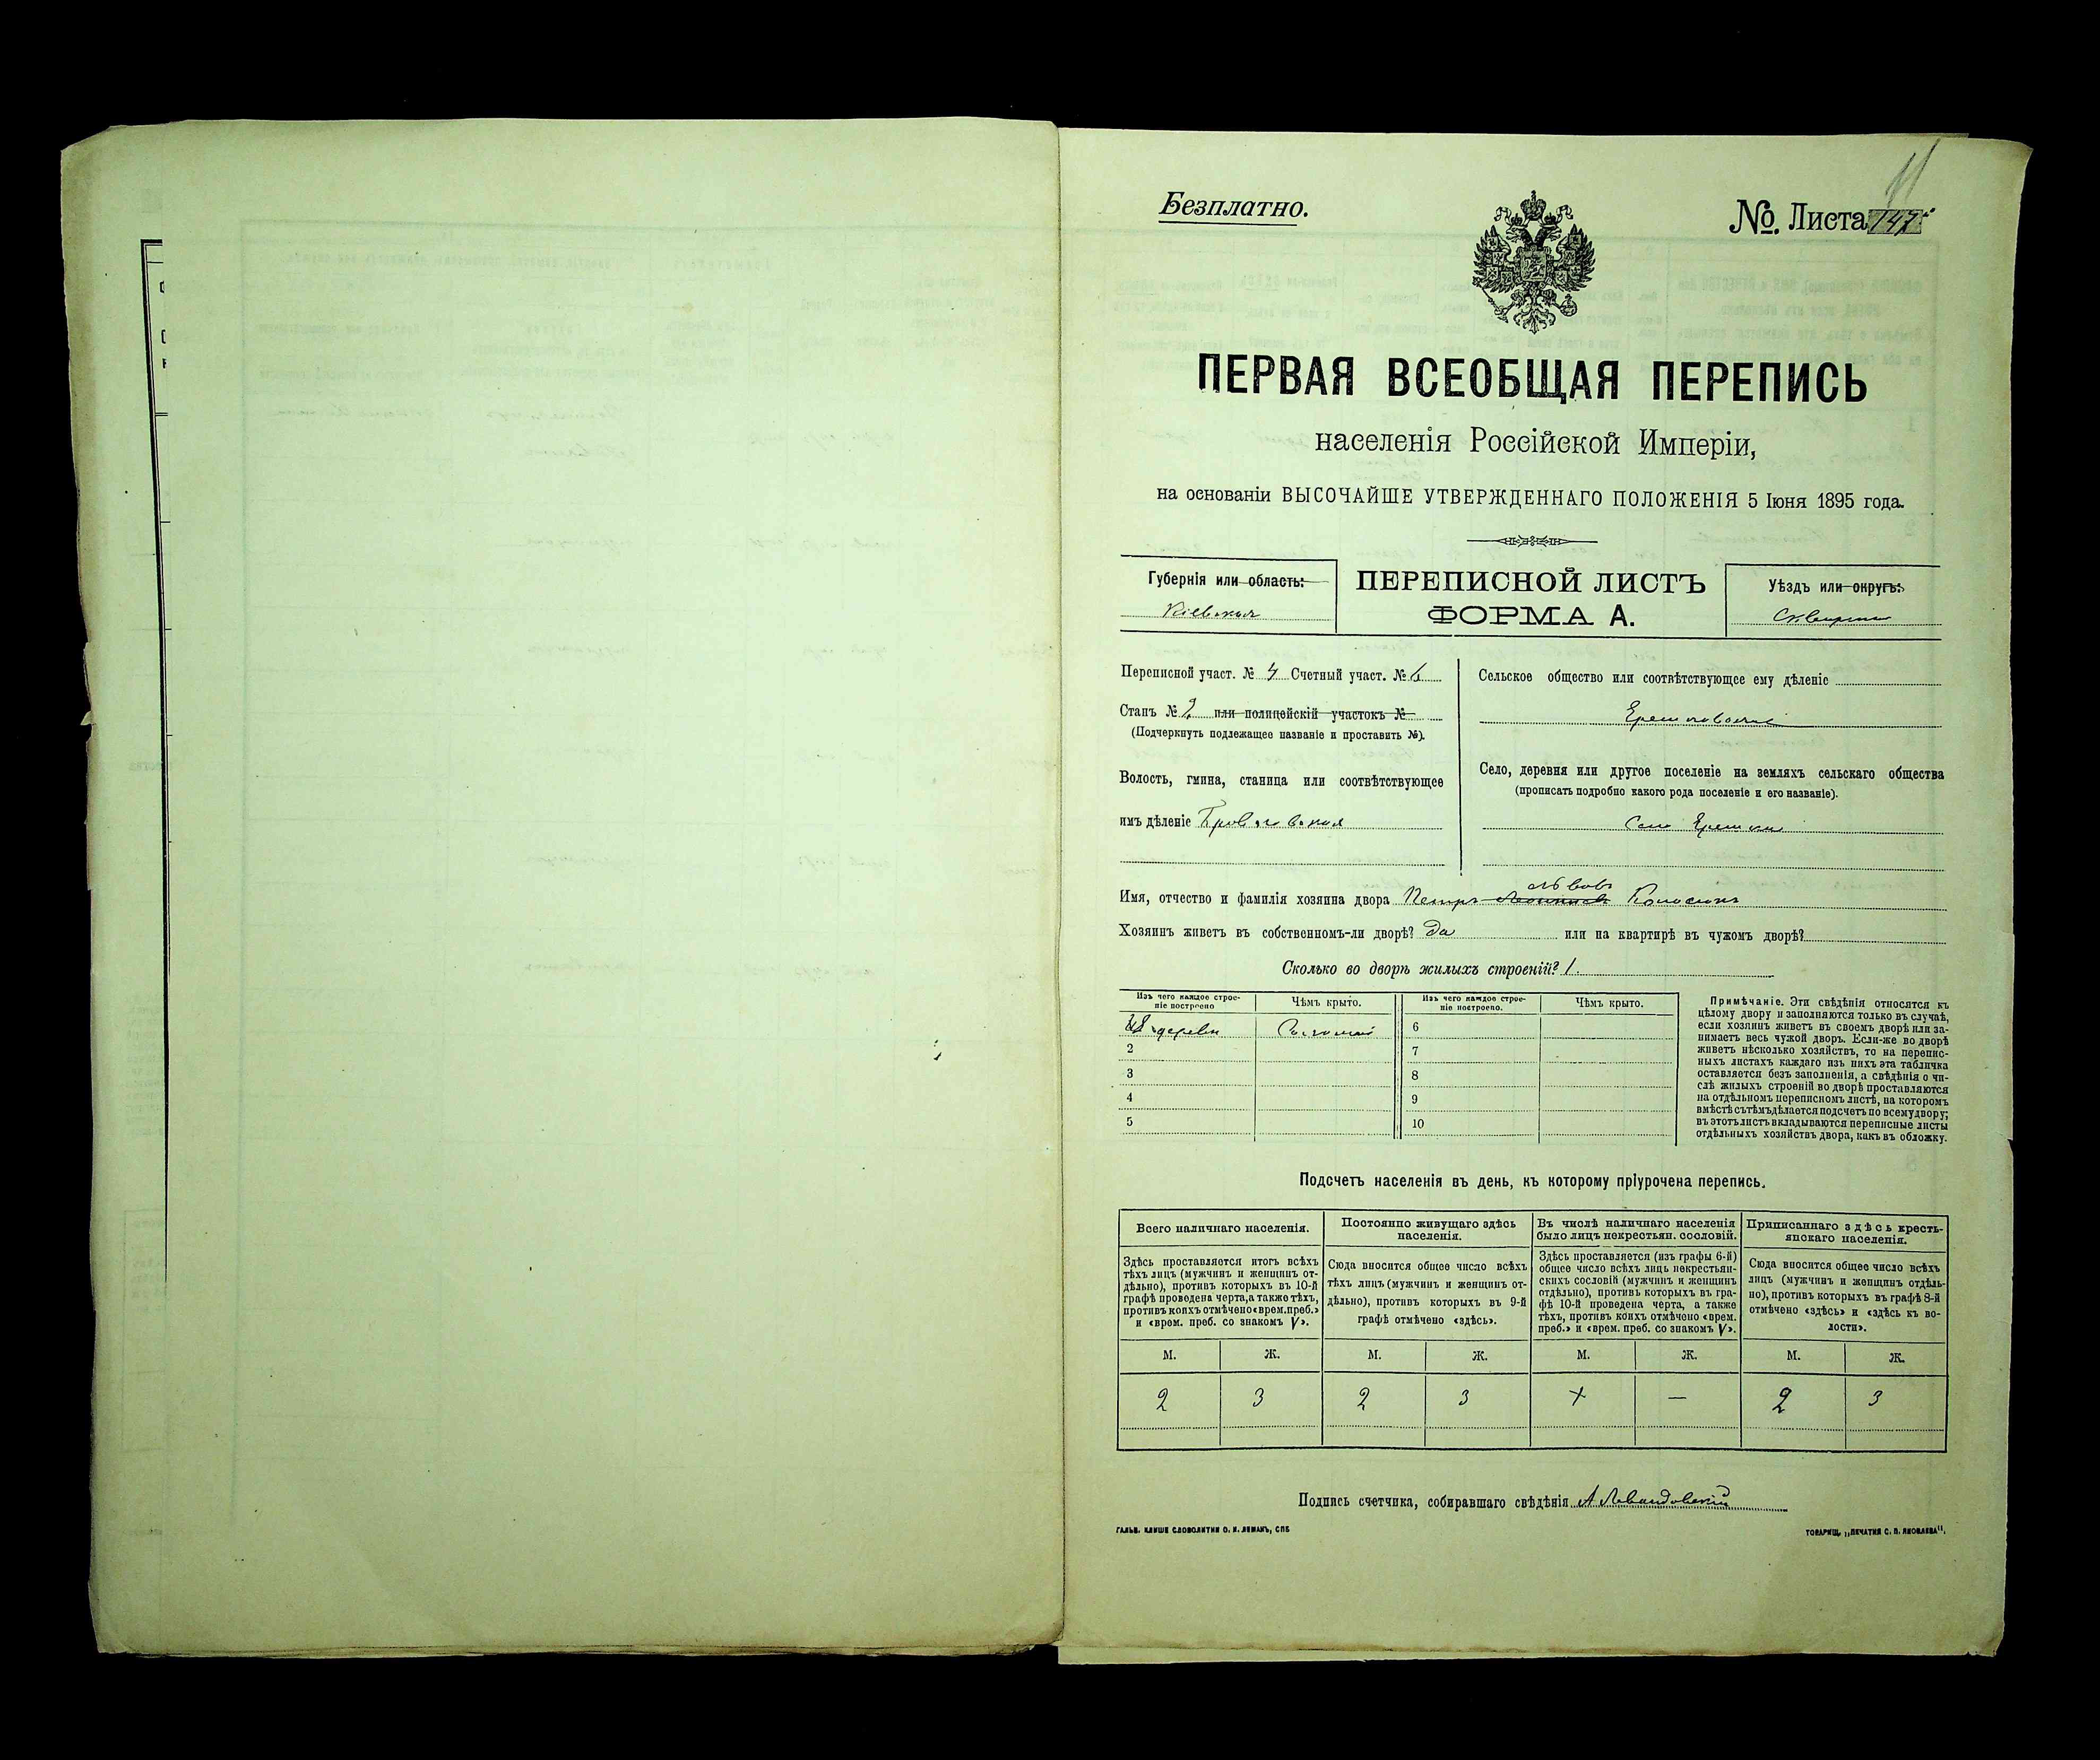 Безплатно.
No. Листа 147
ПЕРВАЯ ВСЕОБЩАЯ ПЕРЕПИСЬ
населенія Россійской Имперіи,
на основаніи ВЫСОЧАЙШЕ УТВЕРЖДЕННАГО ПОЛОЖЕНІЯ 5 Іюня 1895 года.
Губернія или область:
Кіевская
ПЕРЕПИСНОЙ ЛИСТЪ
ФОРМА А.
Уѣздъ или округъ:
Сквирскій
Переписной участ. № 4 Счетный участ. № 6
Станъ № 2 или полицейскій участокъ №
(Подчеркнуть подлежащее названіе и проставить №).
Волость, гмина, станица или соотвѣтствующее
имъ дѣленіе
Сельское общество или соотвѣтствующее ему дѣленіе
Ерешковское
Село, деревня или другое поселеніе на земляхъ сельскаго общества
(прописать подробно какого рода поселеніе и его названіе).
Село Ерешки
Имя, отчество и фамилія хозяина двора Петръ
Хозяинъ живетъ въ собственномъ-ли дворѣ? Да или на квартирѣ въ чужомъ дворѣ?
Сколько во дворѣ жилыхъ строеній? 1.
Изъ чего каждое строе-
ніе построено
Чѣмъ крыто.
Изъ чего каждое строе-
ніе построено.
Чѣмъ крыто.
Изъ дерева Соломой
2
3
4
5
6
7
8
9
10
Примѣчаніе. Эти свѣдѣнія относятся къ
цѣлому двору и заполняются только въ случаѣ,
если хозяинъ живетъ въ своемъ дворѣ или за-
нимаетъ весь чужой дворъ. Если-же во дворѣ
живетъ нѣсколько хозяйствъ, то на перепис-
ныхъ листахъ каждаго изъ нихъ эта табличка
оставляется безъ заполненія, а свѣдѣнія о чи-
слѣ жилыхъ строеній во дворѣ проставляются
на отдѣльномъ переписномъ листѣ, на которомъ
вмѣстѣ съ тѣмъ дѣлается подсчетъ по всему двору;
въ этотъ листъ вкладываются переписные листы
отдѣльныхъ хозяйствъ двора, какъ въ обложку.
Подсчетъ населенія въ день, къ которому пріурочена перепись.
Всего наличнаго населенія.
Здѣсь проставляется итогъ всѣхъ
тѣхъ лицъ (мужчинъ и женщинъ от-
дѣльно), противъ которыхъ въ 10-й
графѣ проведена черта, а также тѣхъ,
противъ коихъ отмѣчено «врем. преб.»
и «врем. преб. со знакомъ V».
Постоянно живущаго здѣсь
населенія.
Сюда вносится общее число всѣхъ
тѣхъ лицъ (мужчинъ и женщинъ от-
дѣльно), противъ которыхъ въ 9-й
графѣ отмѣчено «здѣсь».
Въ числѣ наличнаго населенія
было лицъ некрестьян. сословій.
Здѣсь проставляется (изъ графы 6-й)
общее число всѣхъ лицъ некрестьян-
скихъ сословій (мужчинъ и женщинъ
отдѣльно), противъ которыхъ въ гра-
фѣ 10-й проведена черта, а также
тѣхъ, противъ коихъ отмѣчено «врем.
преб.» и «врем. преб. со знакомъ V».
Приписаннаго здѣсь кресть-
янскаго населенія.
Сюда вносится общее число всѣхъ
лицъ (мужчинъ и женщинъ отдѣль-
но), противъ которыхъ въ графѣ 8-й
отмѣчено «здѣсь» и «здѣсь къ во-
лости».
М. Ж. М. Ж. М. Ж. М. Ж.
2 3 2 3 + — 2 3
Подпись счетчика, собиравшаго свѣдѣнія А Левандовскій
ГАЛЬВ. КЛИШЕ СЛОВОЛИТНИ О. И. ЛЕМАНЪ, СПБ
ТОВАРИЩ. „ПЕЧАТНЯ С. П. ЯКОВЛЕВА".